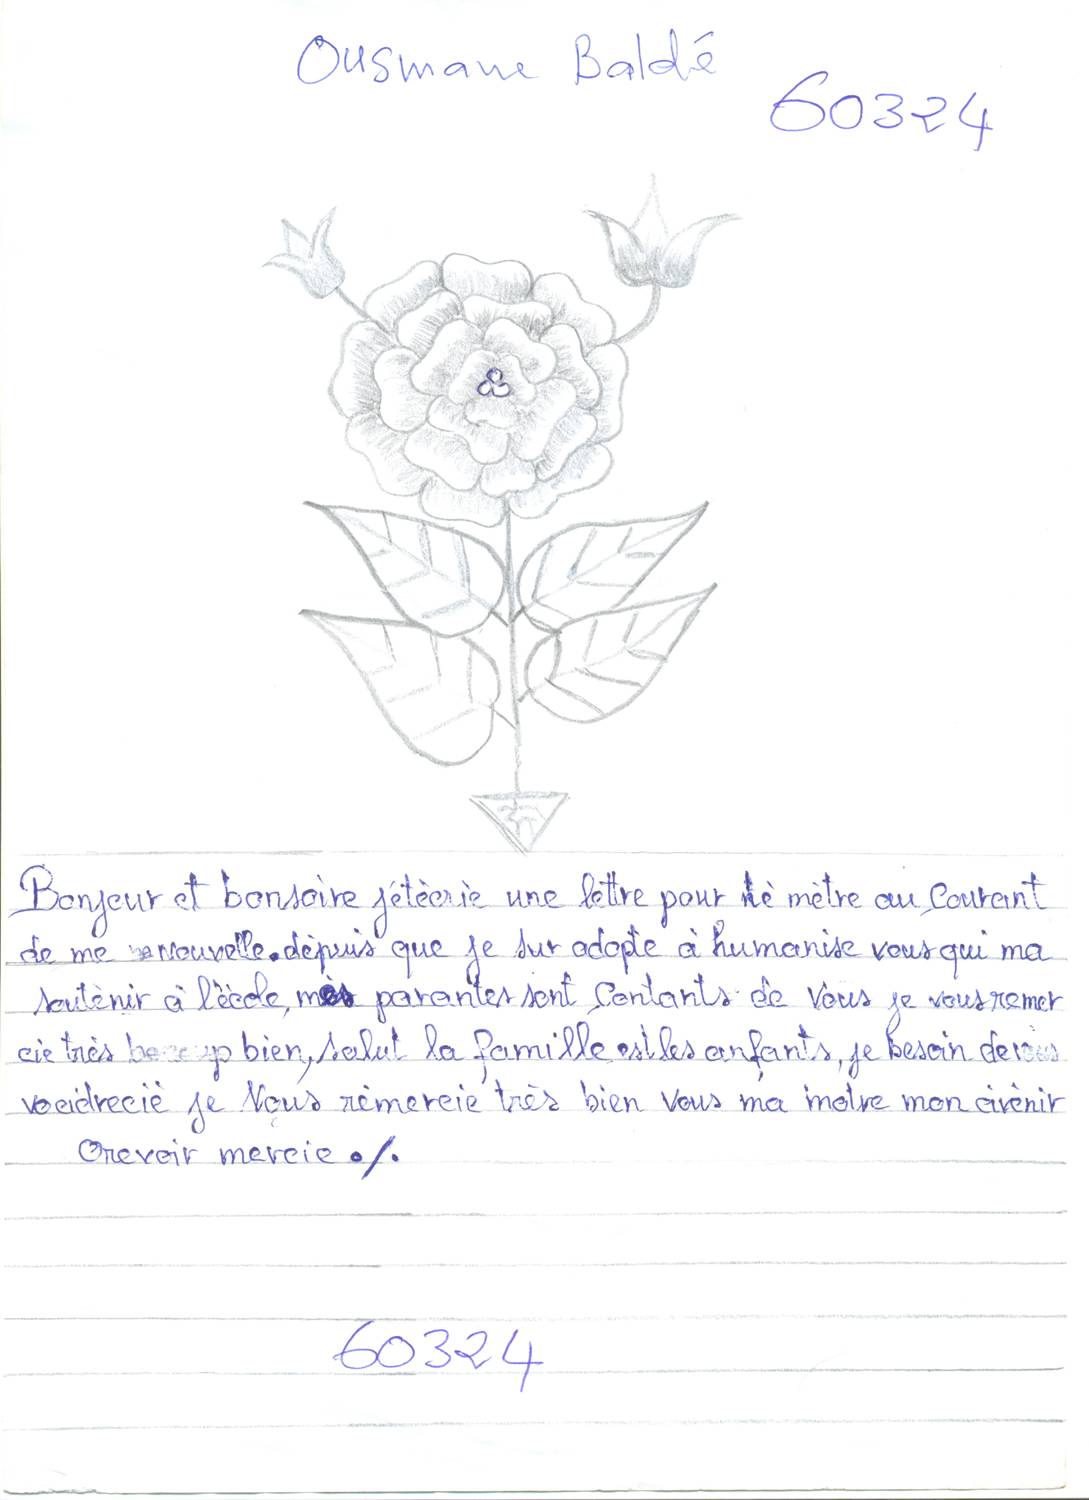 Ousmane Baldé
60324
Bonjeur et bonsoire j'étècrie une lèttre pour tè mètre au Courant
de me Nouvelle. dèpuis que je sur adopte à humanise vous qui ma
soutènir à l'ècole, mes parantes sont Contants de Vous je vous remer
cie très bien, salut la famille est les anfants, je besoin de vous
je Vous rèmercie très bien vous ma motre mon avènir
Orevoir mercie ./.
60324